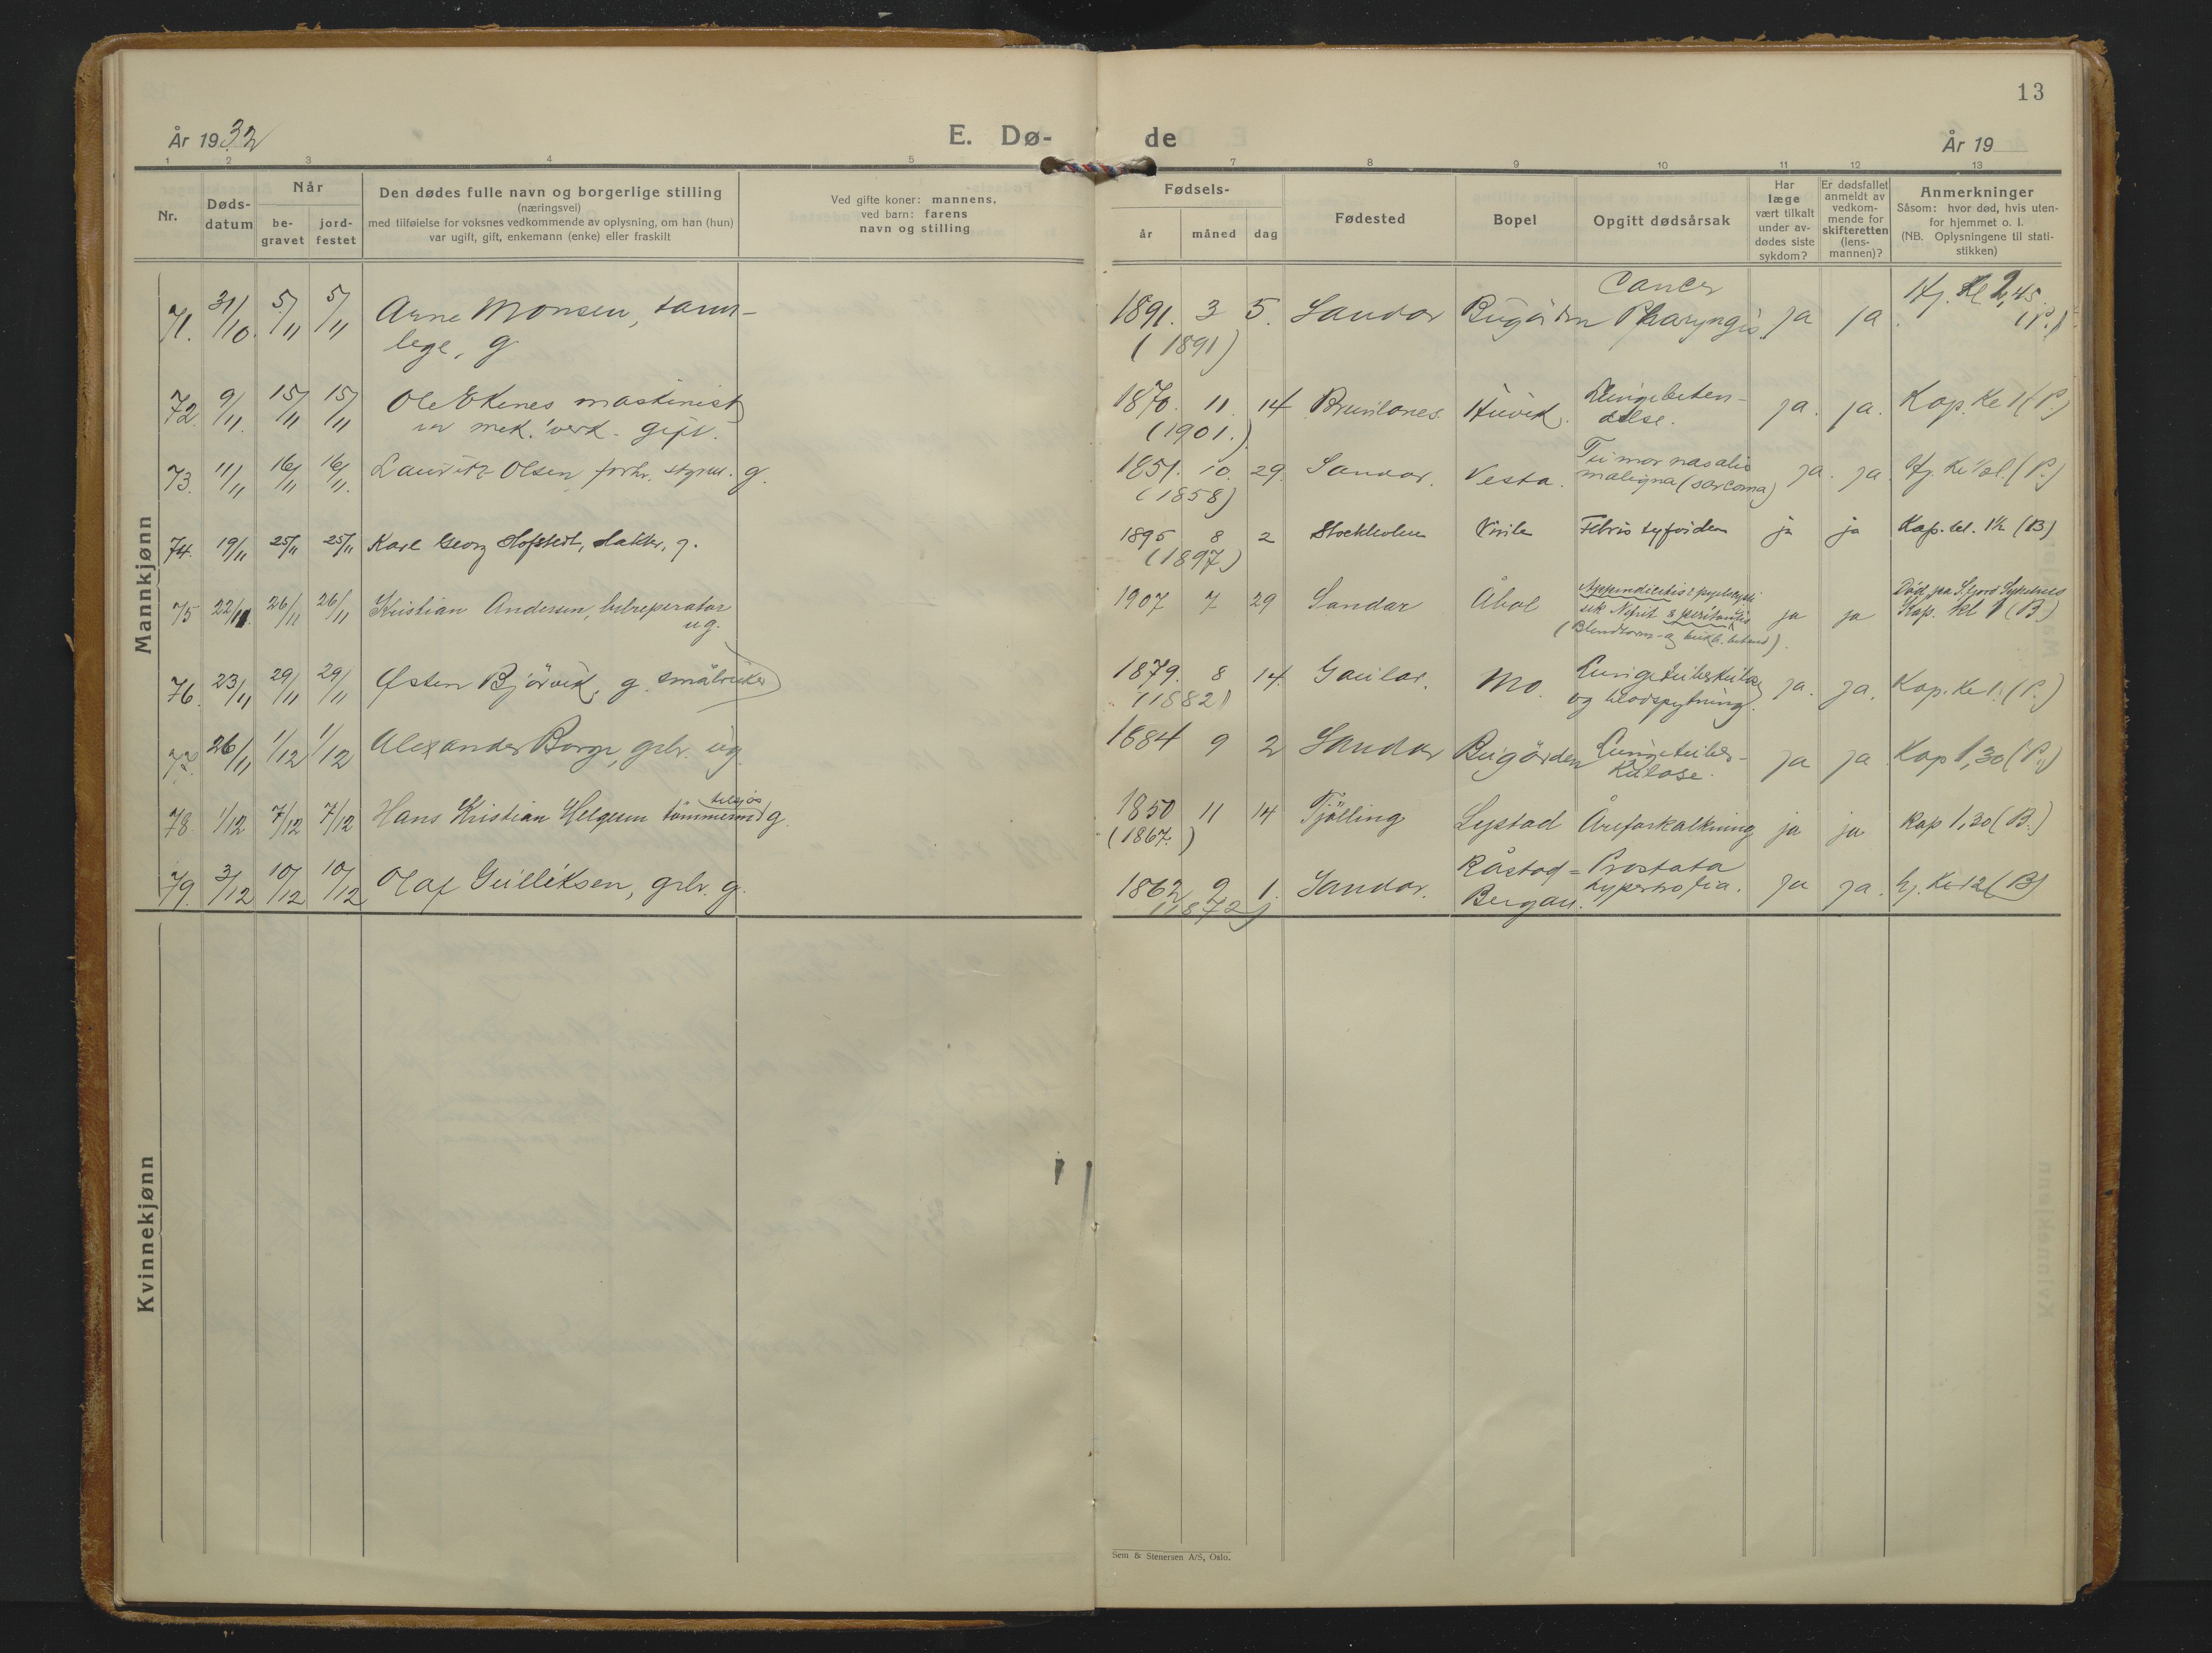 13
År 1932
E. Dø-
de
År 19
1 2 3 4 5 7 8 9 10 11 12 13
Nr.
Døds-
datum
Når
be-
gravet
jord-
festet
Den dødes fulle navn og borgerlige stilling
(næringsvei)
med tilføielse for voksnes vedkommende av oplysning, om han (hun)
var ugift, gift, enkemann (enke) eller fraskilt
Ved gifte koner: mannens,
ved barn: farens
navn og stilling
Fødsels-
år måned dag
Fødested
Bopel
Opgitt dødsårsak
Har
læge
vært tilkalt
under av-
dødes siste
sykdom?
Er dødsfallet
anmeldt av
vedkom-
mende for
skifteretten
(lens-
mannen)?
Anmerkninger
Såsom: hvor død, hvis uten-
for hjemmet o. l.
(NB. Oplysningene til stati-
stikken)
Mannkjønn
71. 31/10. 5/11 5/11 Arne Monsen, tann-
lege, g
1891. 3 5. Sandar Bugården Cancer
Pharyngis. ja ja. Hj. kl 2,45.
(P.)
(1891)
72. 9/11. 15/11 15/11 Ole Ekenes maskinist
ver mek. verk. gift.
1870. 11. 14 Brunlanes. Huvik. Lungebeten-
delse. ja. ja. Kap. kl 1 (P.)
(1901.)
73. 11/11 16/11 16/11. Lauritz Olsen, forhv. styrm. g.
1851. 10. 29. Sandar. Vesta. Tumor nasalis
maligna (sarcoma) ja. ja. Hj. kl (P.)
(1858)
74. 19/11 25/11 25/11 Karl Georg Hofstedt, slakter, g.
1895 8 2 Stockholm Virik Febris tyfoidea ja ja Kap. kl. 1½ (B)
(1897)
75 22/11. 26/11 26/11 Kristian Andersen, bilreparatør
ug.
1907 7 29 Sandar Åbol Appendicitis
peritonitis
(Blindtarm- og bukh. betend). ja ja Død paa S.fjord Sykehus
Kap. kl 1 (B.)
76. 23/11 29/11 29/11 Østen Bjørvik, g. småbruker
1879. 8 14. Gaular. Mo. Lungetuberkulose
og blodspytning. ja. ja. Kap. kl 1. (P.)
(1882)
77. 26/11 1/12 1/12 Alexander Borge, grbr. ug.
1884 9 2 Sandar Bugården Lungetuber-
kulose. ja ja Kap 1,30 (P.)
78. 1/12 7/12 7/12 Hans Kristian Helgesen tømmerm. tilsjøs g.
1850 11 14 Tjølling Lystad Åreforkalkning ja ja Kap 1,30 (B.)
(1867.)
79. 3/12 10/12 10/12 Olaf Gulliksen, grbr. g.
1862 9 1. Sandar. Råstad =
Bergan. Prostata
hypertrofia. ja ja. hj. kl 12 (B)
(1872)
Kvinnekjønn
Sem & Stenersen A/S, Oslo.